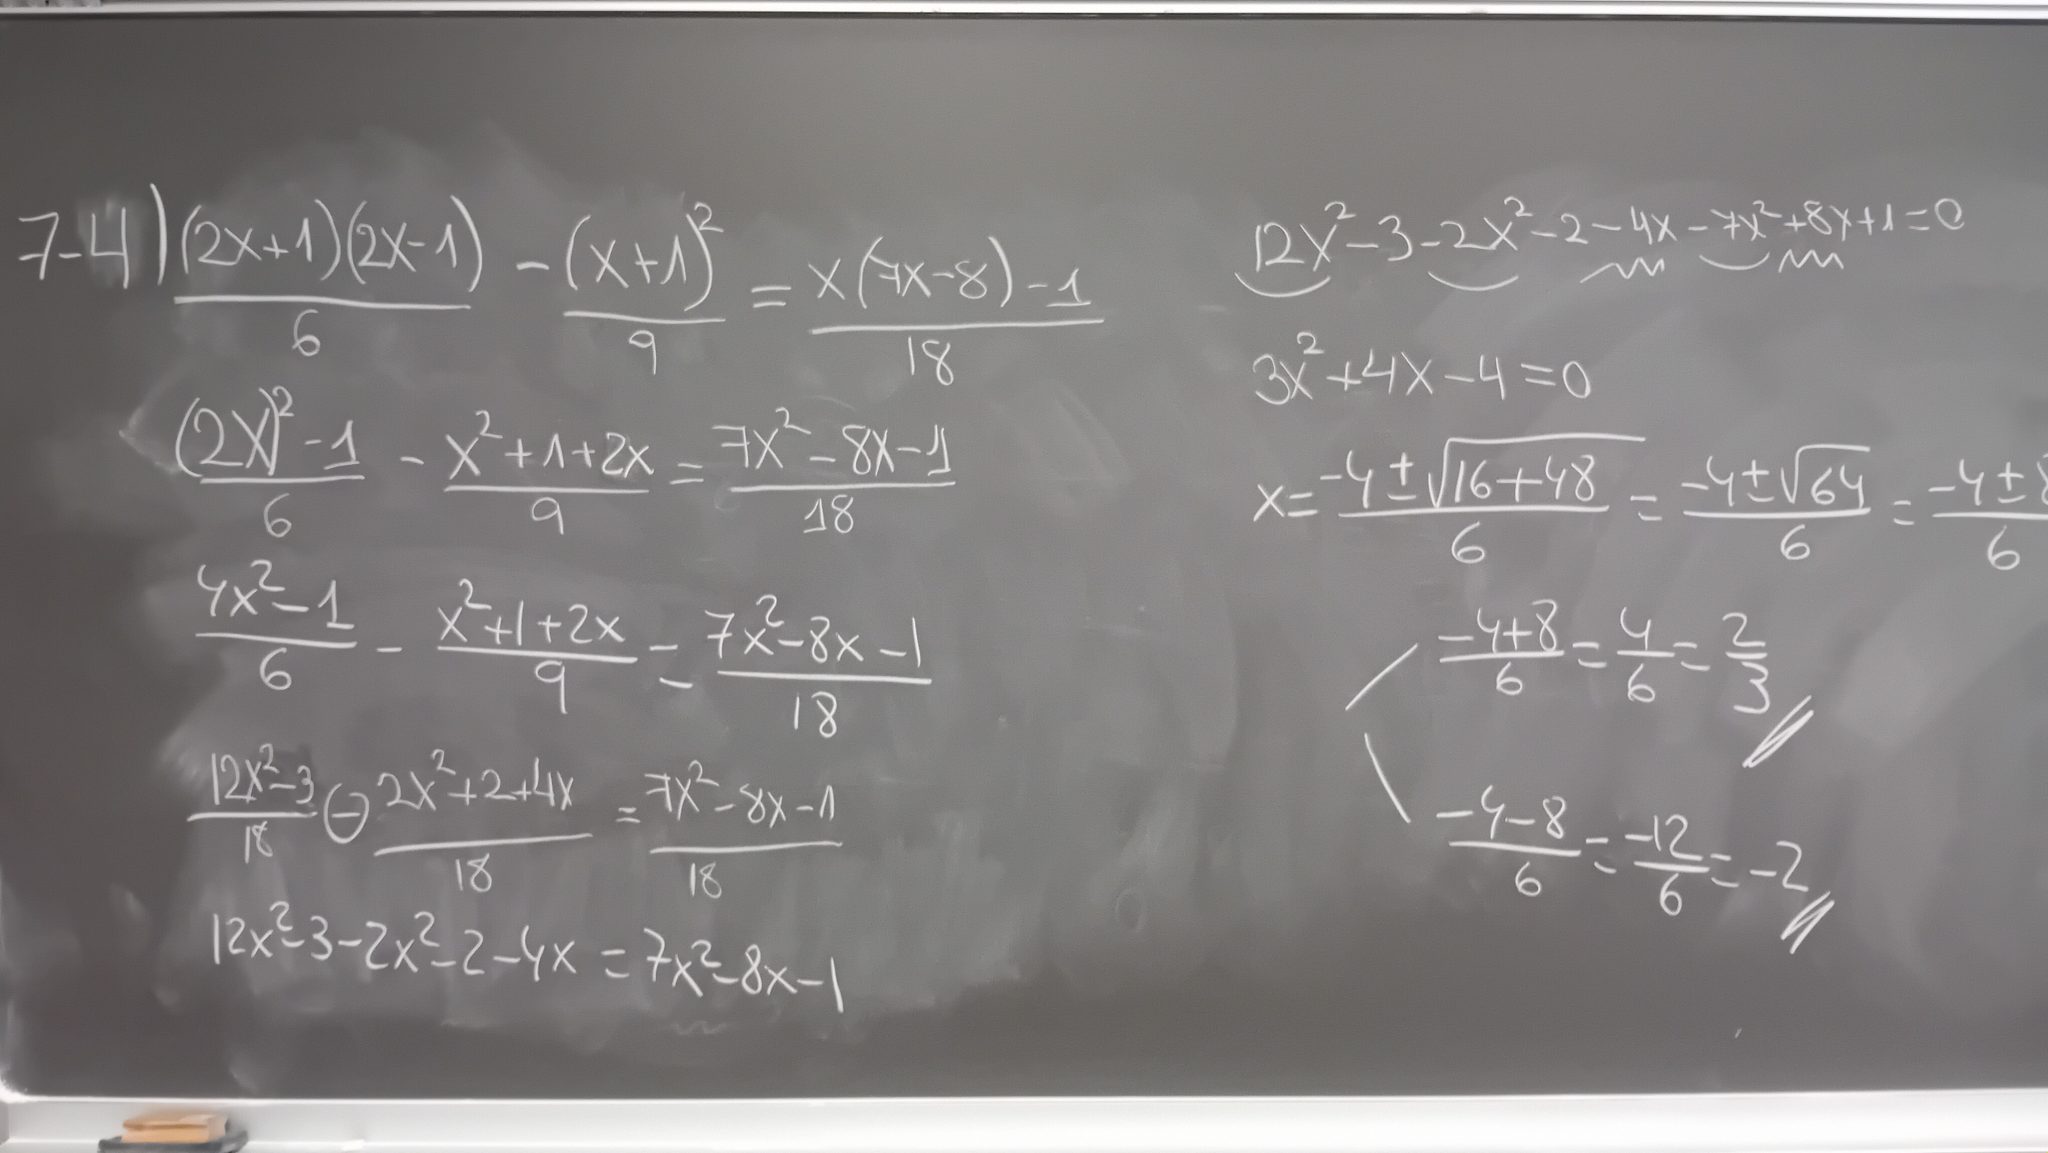 7-4) (2x+1)(2x-1)/6 - (x+1)²/9 = x(7x-8)-1/18
(2x)²-1/6 - x²+1+2x/9 = 7x²-8x-1/18
4x²-1/6 - x²+1+2x/9 = 7x²-8x-1/18
12x²-3/18 ⊖ 2x²+2+4x/18 = 7x²-8x-1/18
12x²-3-2x²-2-4x = 7x²-8x-1
12x²-3-2x²-2-4x-7x²+8x+1=0
3x²+4x-4=0
x= -4±√16+48/6 = -4±√64/6 = -4±8/6
-4+8/6 = 4/6 = 2/3
-4-8/6 = -12/6 = -2